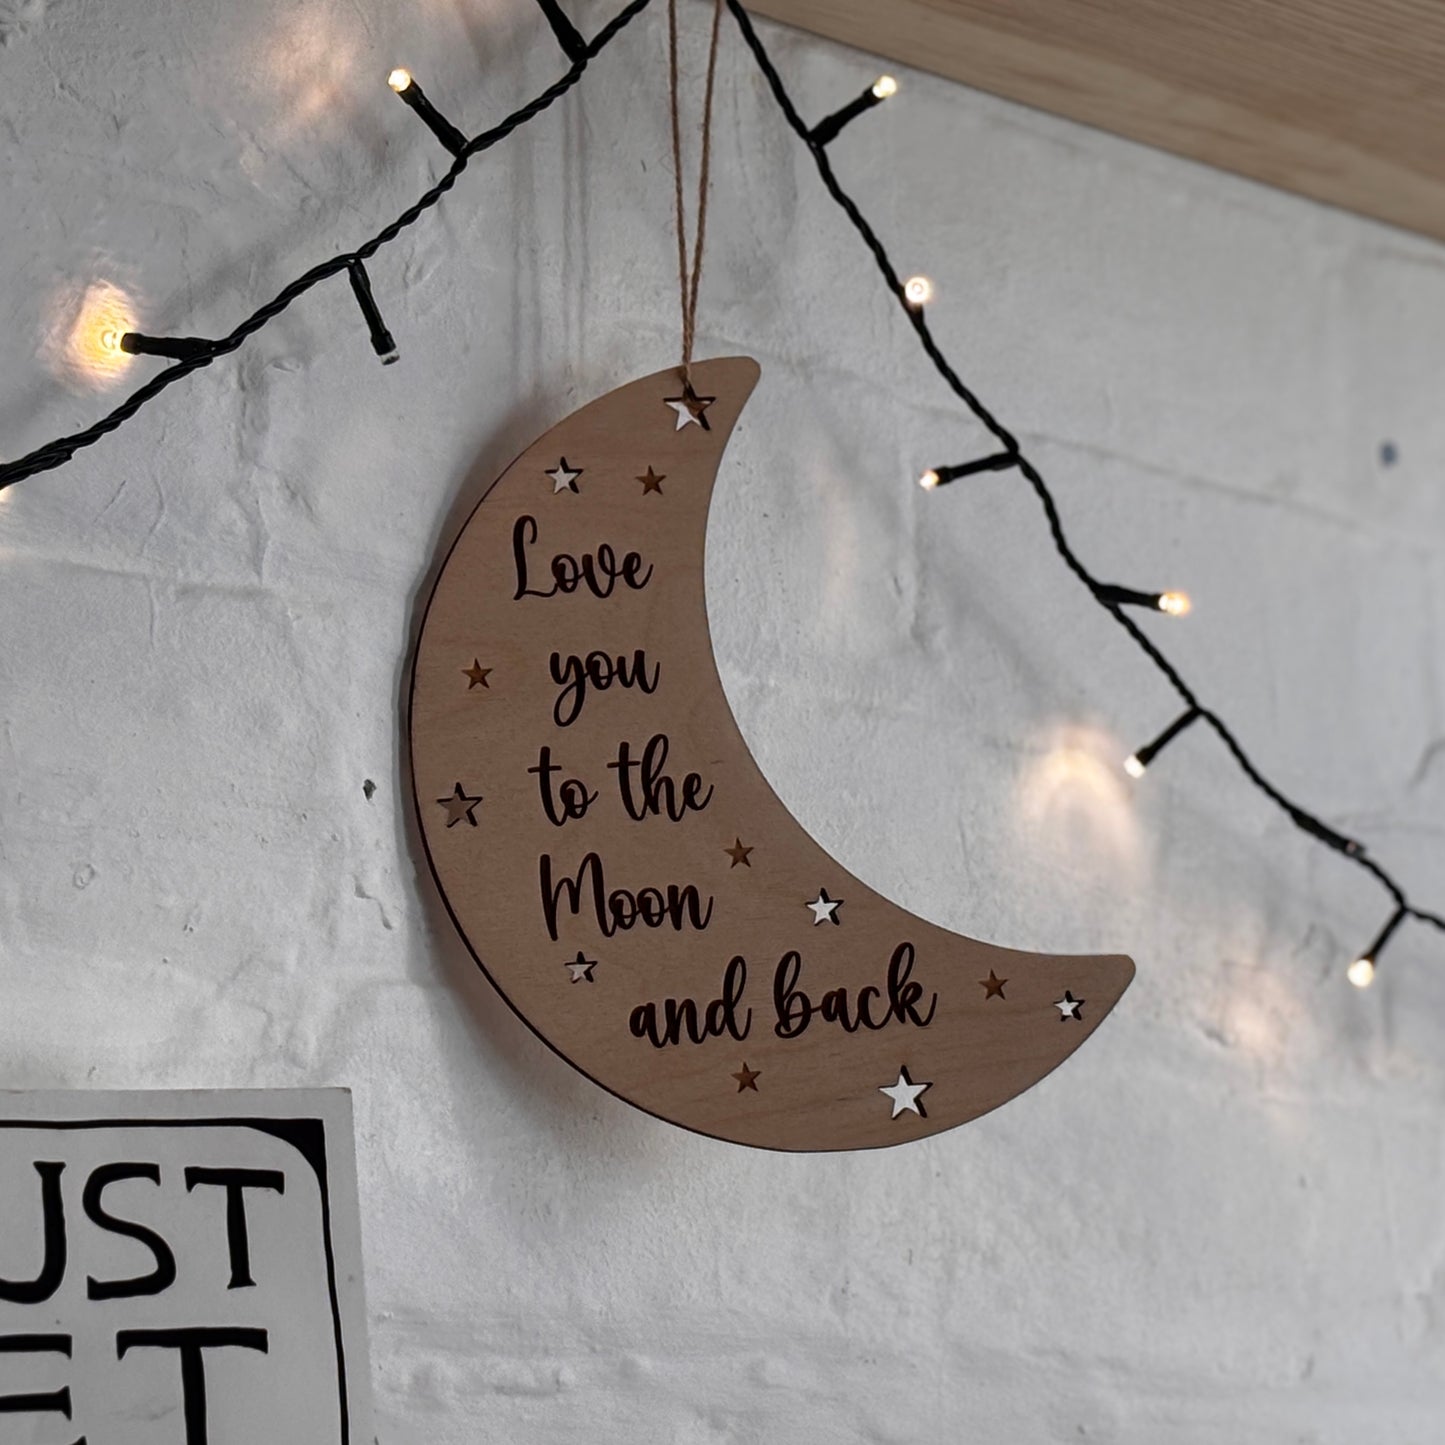 Love
you
to the
Moon
and back
UST
ET